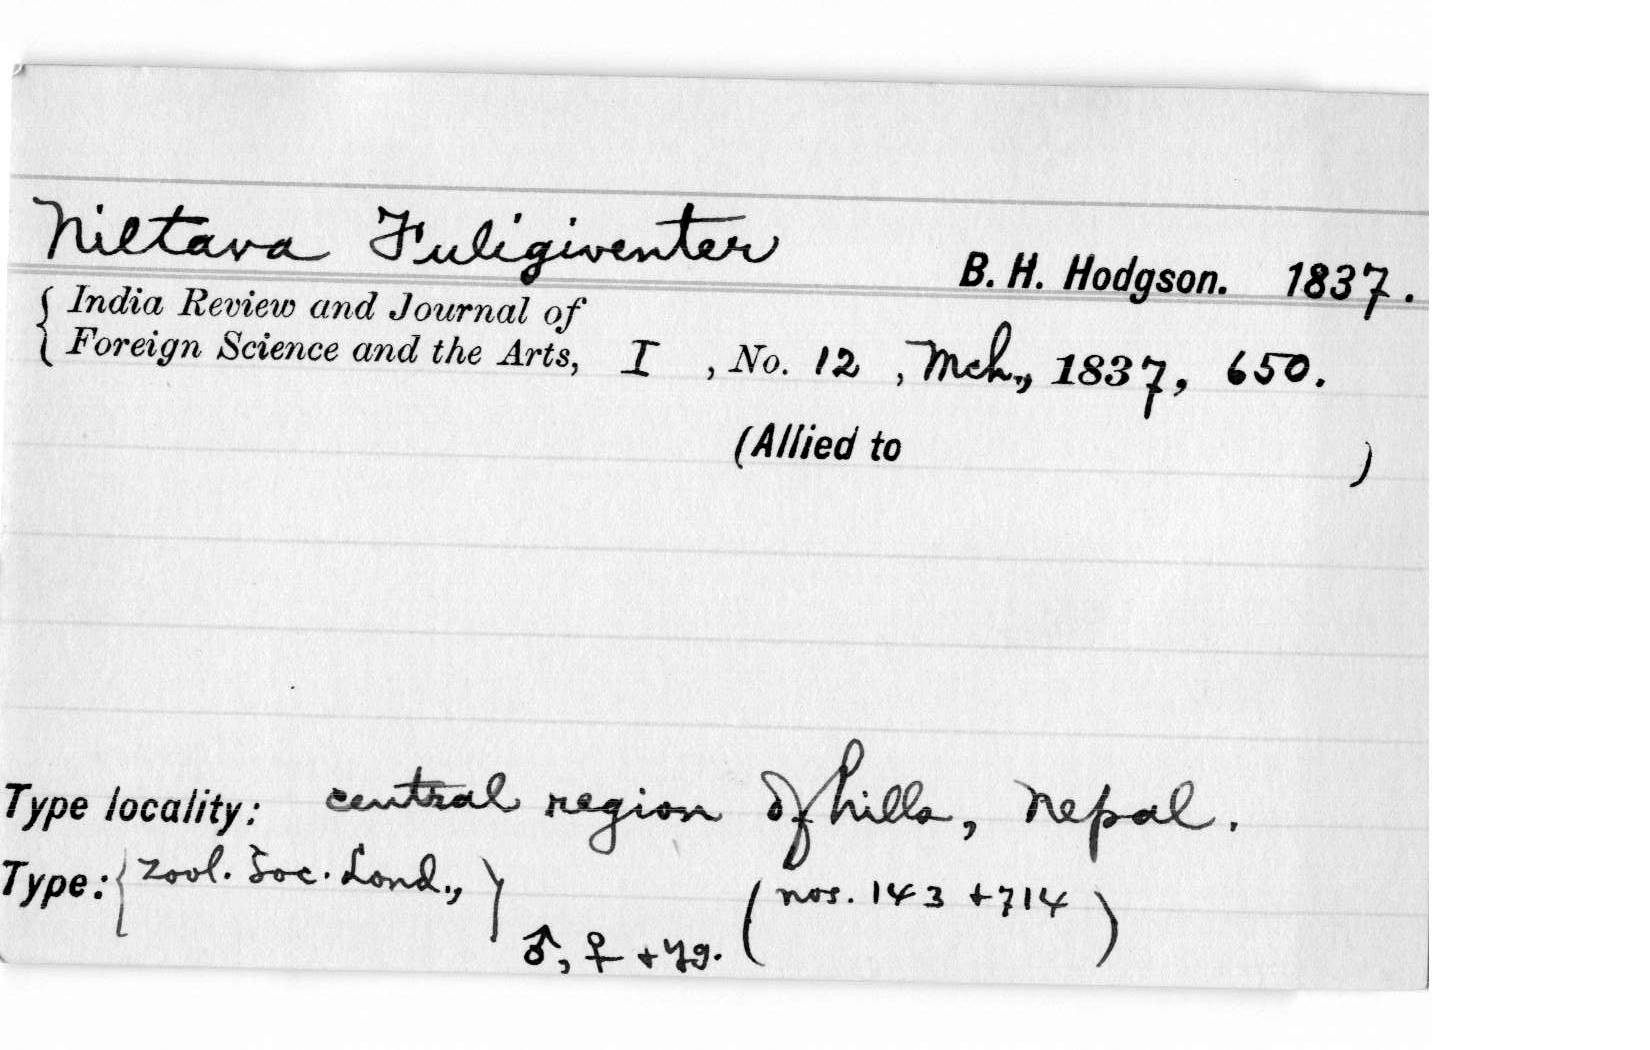 Niltava Fuligiventer
B. H. Hodgson. 1837.
India Review and Journal of
Foreign Science and the Arts, I , No. 12 , Mch., 1837, 650.
(Allied to )
Type locality: central region of hills, Nepal.
Type: { Zool. Soc. Lond., }
♂, ♀ + yg. (nos. 143 + 714)